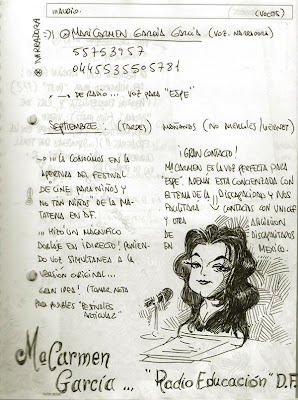 AUDIO.
(VOCES)
NARRADORA
:) MARICARMEN GARCÍA GARCÍA (VOZ. NARRADORA)
55753957
0445535505781
→ DE RADIO... VOZ PARA "ESPE"
SEPTIEMBRE: (TARDES) MAÑANAS (NO MIERCOLES/VIERNES)
→ LA CONOCIMOS EN LA
APERTURA DEL FESTIVAL
DE CINE PARA NIÑOS Y
NO TAN NIÑOS" DE LA MA-
TATENA EN D.F.
... HIZO UN MAGNÍFICO
DOBLAJE EN ¡DIRECTO! PONIEN-
DO VOZ SIMULTANEA A LA
VERSIÓN ORIGINAL...
GRAN IDEA! (TOMAR NOTA
PARA POSIBLES "FESTIVALES
¡GRAN CONTACTO!
Mª CARMEN ES LA VOZ PERFECTA PARA
"ESPE". ADEMÁS ESTÁ CONCIENZADA CON
EL TEMA DE LA DISCAPACIDAD Y NOS
FACILITARÁ CONTACTOS CON UNICEF
Y OTRA ASOCIACION
DE DISCAPACITADOS
EN MEXICO.
Mª Carmen
García ... "Radio Educación" D.F.